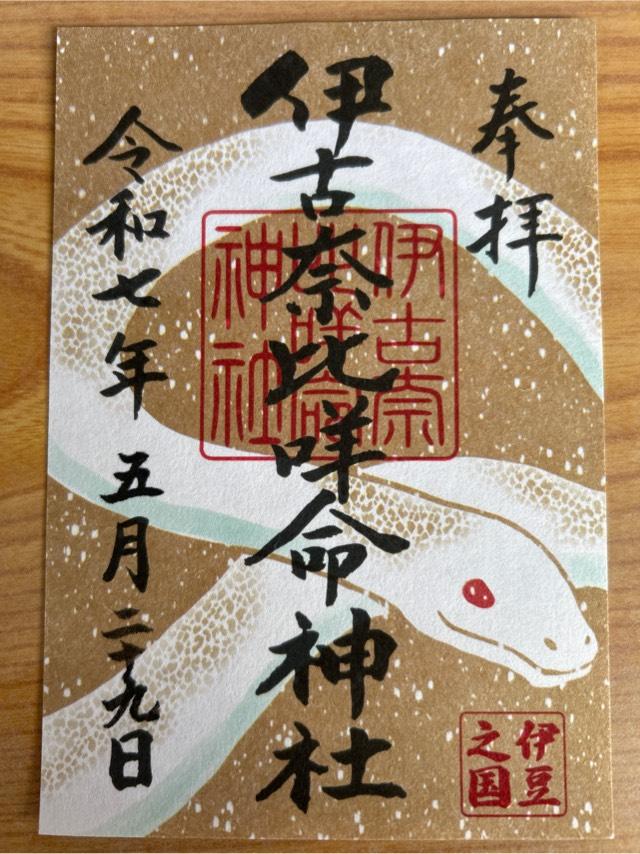 奉拝
伊古奈比咩命神社
伊古奈
比咩命
神社
令和七年 五月 二十九日
伊豆
之国